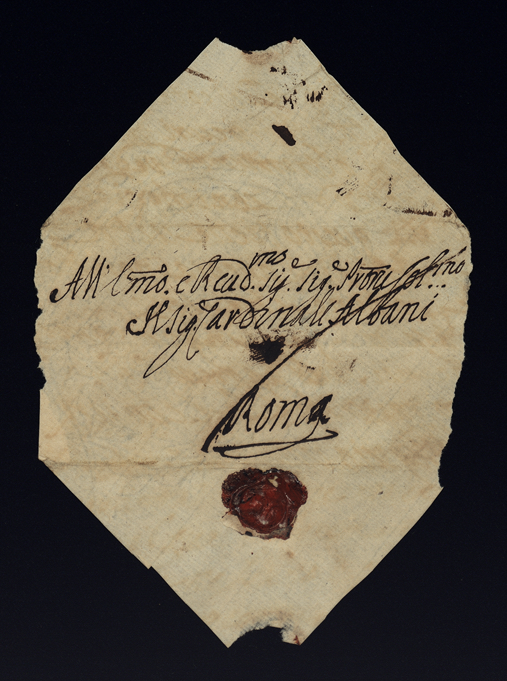 All Emo. e Reud.mo sig.e sig.e Prone Col.mo
Il sig.r Cardinale Albani
Roma